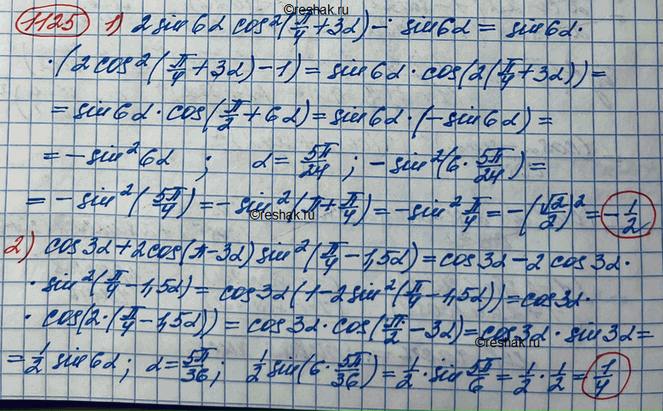 ©reshak.ru
1125 1) 2 sin 6α cos²(π/4 + 3α) − sin 6α = sin 6α ·
· (2 cos²(π/4 + 3α) − 1) = sin 6α · cos(2(π/4 + 3α)) =
= sin 6α · cos(π/2 + 6α) = sin 6α · (− sin 6α) =
= − sin² 6α ; α = 5π/24 ; − sin²(6 · 5π/24) =
= − sin²(5π/4) = − sin²(π + π/4) = − sin² π/4 = −(√2/2)² = −1/2
©reshak.ru
2) cos 3α + 2 cos(π − 3α) sin²(π/4 − 1,5α) = cos 3α − 2 cos 3α ·
· sin²(π/4 − 1,5α) = cos 3α (1 − 2 sin²(π/4 − 1,5α)) = cos 3α ·
· cos(2 · (π/4 − 1,5α)) = cos 3α · cos(π/2 − 3α) = cos 3α · sin 3α =
©reshak.ru
= 1/2 sin 6α ; α = 5π/36 ; 1/2 sin(6 · 5π/36) = 1/2 · sin 5π/6 = 1/2 · 1/2 = 1/4